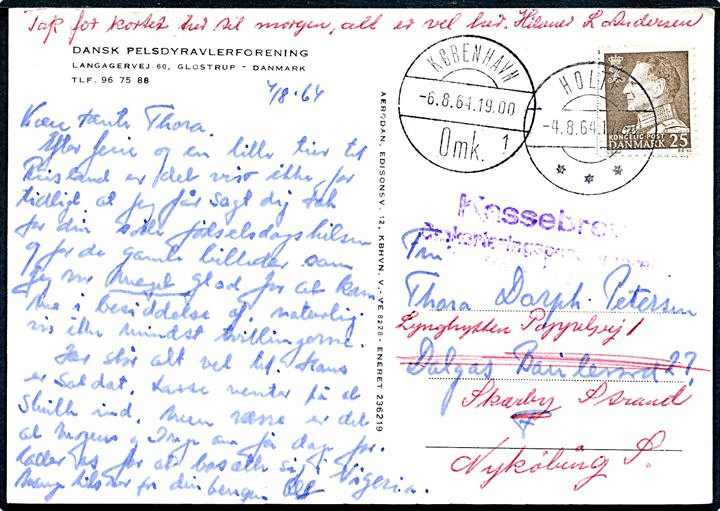 Tak for kortet her til morgen, alt er vel her. Hilsner L Andersen
DANSK PELSDYRAVLERFORENING
LANGAGERVEJ 60, GLOSTRUP - DANMARK
TLF. 96 75 88
4/8-64
Kære tante Thora.
Efter ferie og en lille tur til
er det vist ikke for
tidligt at jeg får sagt dig tak
for din søde fødselsdagshilsen
og for de gamle billeder som
jeg er meget glad for at kom
me i besiddelse af, naturlig
vis ikke mindst tvillingerne.
Her står alt vel til. Hans
er Soldat. Lasse venter på at
ind. Men værre er det
at Mogens og Inga om få dage for
lader os for at bosætte sig i Nigeria.
Mange hilsner fra din hengivne
AERODAN, EDISONSV. 12, KBHVN. V. - VE 8928 - ENERET 236219
KØBENHAVN
-6.8.64.19.00
Omk. 1
HOL
-4.8.64.1
KONGELIG POST
DANMARK 25
Kassebrev
Fru
Thora Dorph-Petersen
Lynghytten Poppelvej 1
Dalgas Boulevard 27
Skærby Strand
F
Nykøbing S.